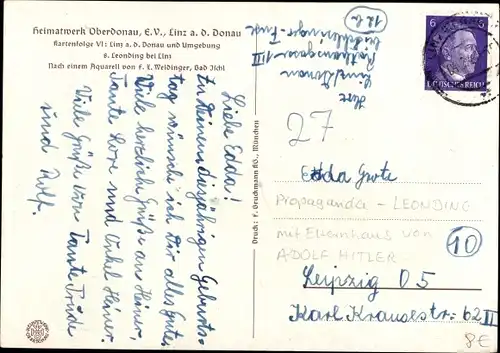 Heimatwerk Oberdonau, E.V., Linz a. d. Donau
Kartenfolge VI: Linz a. d. Donau und Umgebung
8. Leonding bei Linz
Nach einem Aquarell von F. E. Weidinger, Bad Ischl
Liebe Edda!
Zu Deinem diesjährigen Geburts-
tag wünsche ich Dir alles Gute.
Viele herzliche Grüße an Heiner,
Tante Lore und Onkel Heiner.
Viele Grüße von Tante Trude
und Rolf.
Druck: F. Bruckmann KG., München
Linz/Donau
Rathausgasse 1 III
12.6
6 6
DEUTSCHES REICH
27
Edda Grote
Propaganda - LEONDING
mit Elternhaus von
ADOLF HITLER
10
Leipzig O5
Karl Krausestr. 62 II
8€